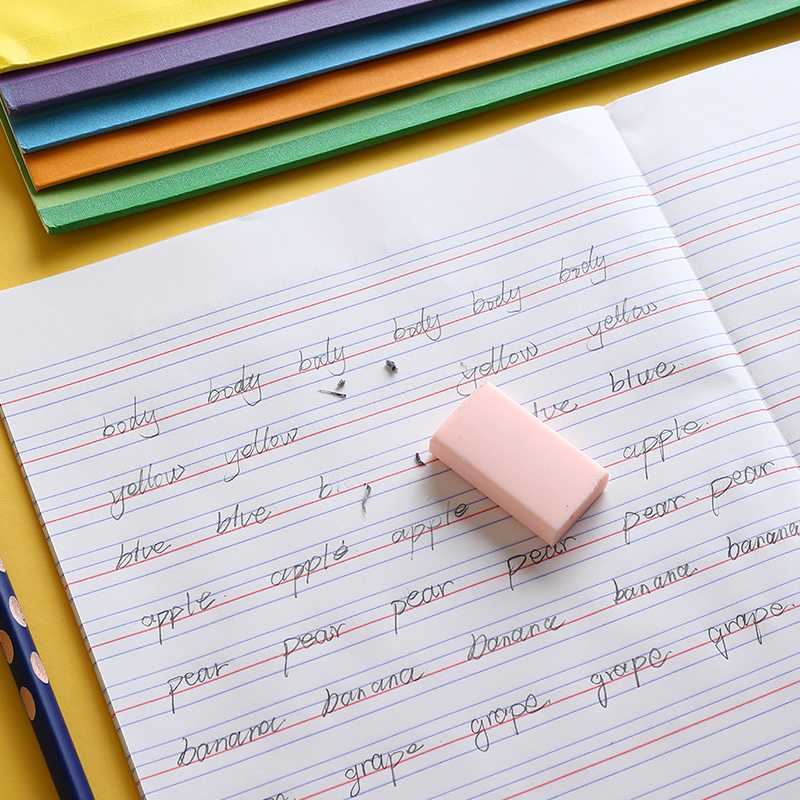 body body body body body body
yellow yellow yellow yellow
blue blue blue.
apple. apple apple apple.
pear pear pear pear pear. pear
banana banana banana banana. banana
grape grape grape grape.